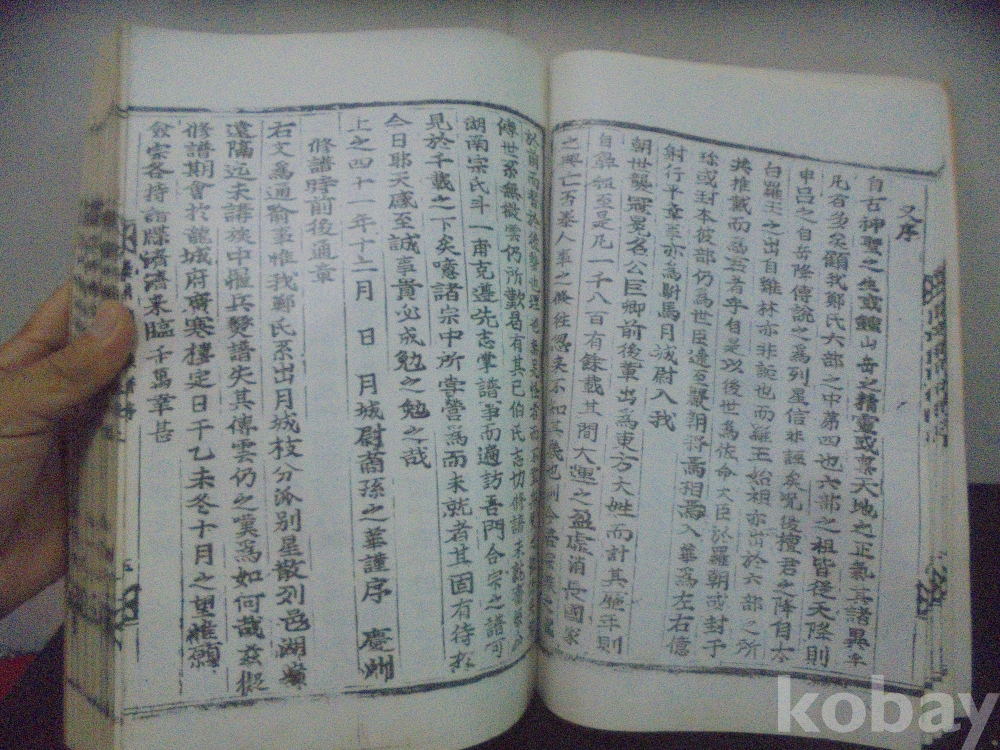 又序
自古神聖之生或鍾山岳之精靈或稟天地之正氣其諸異乎
凡有多矣顧我鄭氏六部之中第四也六部之祖皆從天降則
申呂之自岳降傳說之爲列星信非誣矣況後檀君之降自太
白羅王之出自雞林亦非誕也而羅王始祖亦出於六部之所
共推戴而爲君者乎自是以後世爲佐命大臣於羅朝或封于
珍或封本彼部仍爲世臣逮至麗朝將爲相爲入華爲左右僕
射行平章至亦爲駙馬月城尉入我
朝世襲冠冕名公巨卿前後輩出爲東方大姓而計其歷年則
自鼻祖至是凡一千八百有餘載其間大運之盈虛消長國家
之興亡
傳世系無徵雲仍所歎曷有其已伯氏志切修譜未就
湖南宗氏斗一甫克遵先志掌譜事而適訪吾門合宗之譜可
見於千載之下矣噫諸宗中所嘗營爲而未就者其固有待於
今日耶天感至誠事貴必成勉之勉之哉
上之四十一年十二月 日 月城尉裔孫之華謹序 慶州
修譜時前後通章
右文爲通喩事惟我鄭氏系出月城枝分派別星散列邑湖嶺
遠隔迄未講族中擢兵燹譜失其傳雲仍之嘆爲如何哉玆擬
修譜期會於龍城府廣寒樓定日于乙未冬十月之望惟願
僉宗各持 牒濟濟來臨千萬幸甚
kobay